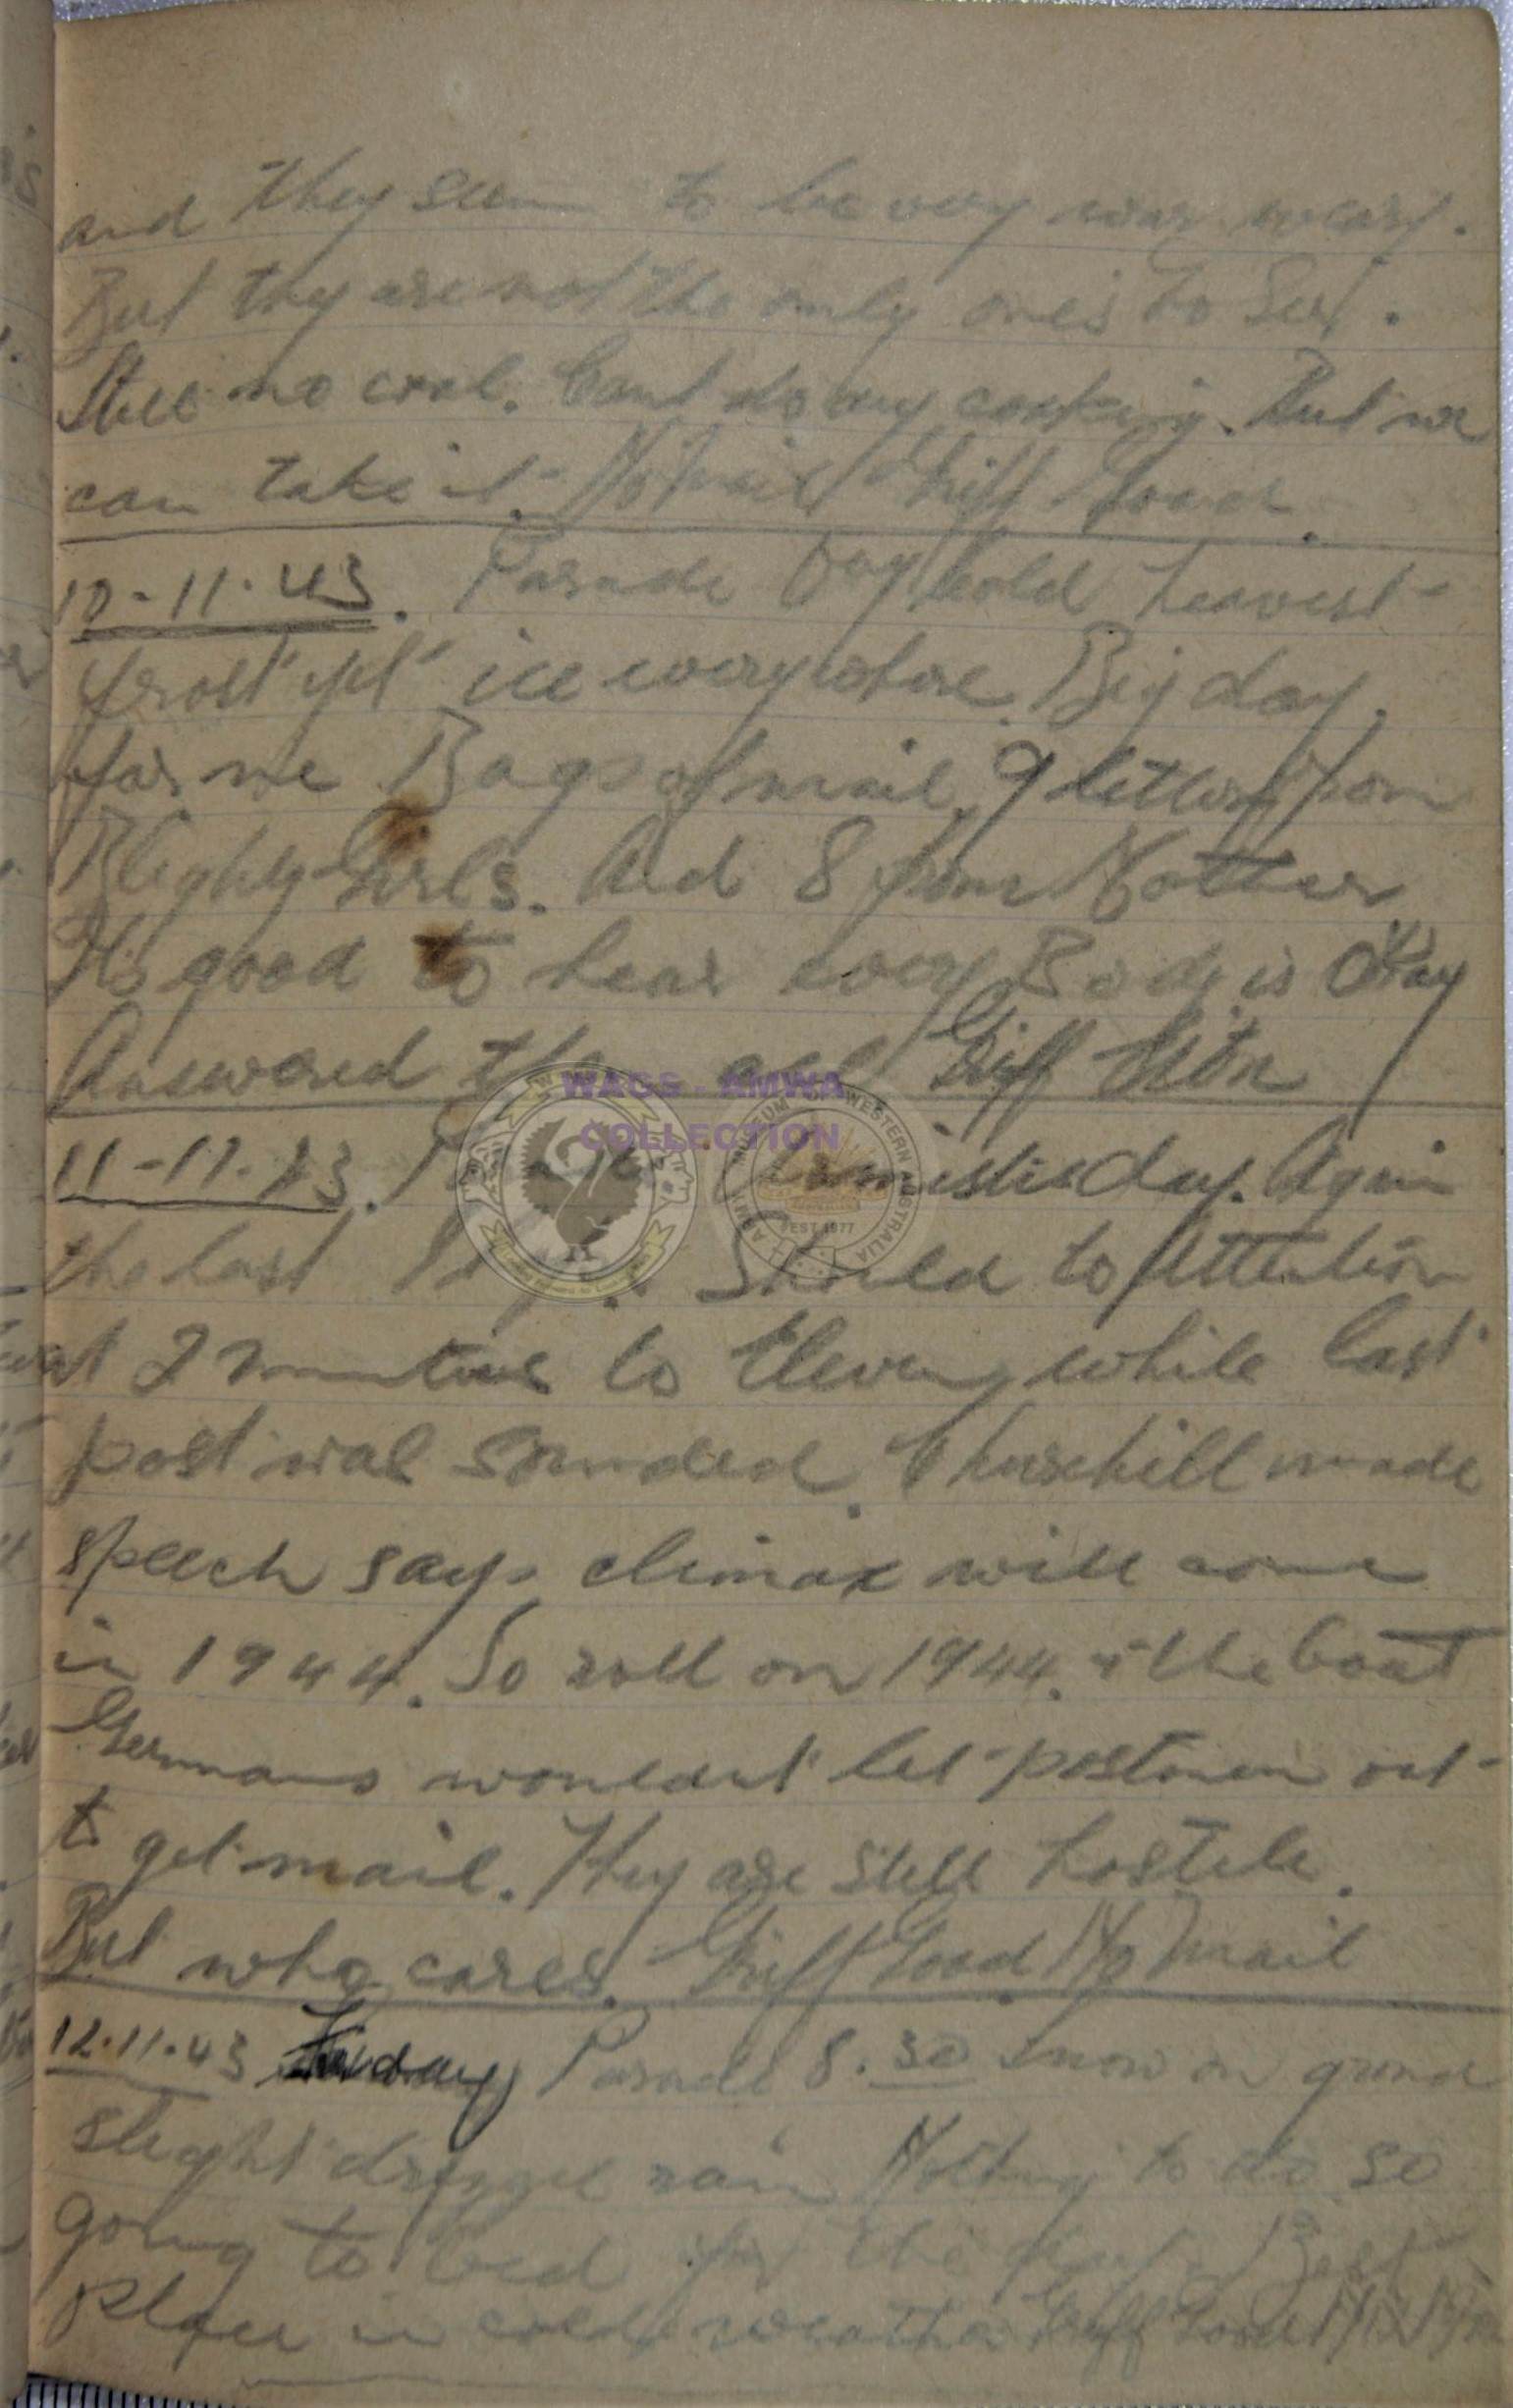 and they seem to be very war weary.
But they are not the only one's to Sew.
Still no coal. Cant do any cooking. But we
can take it. No Mail Griff Good.
10-11-43. Parade Day Cold heavest
frost yet ice everywhere. Big day.
for me Bags of mail. 9 letters from
Blighty Girls. And 8 from Mother.
It's good to hear every Body is OKay
Answered them all Griff
WAGS - AMWA
COLLECTION
ARMY MUSEUM OF WESTERN AUSTRALIA
EST 1977
11-11-43. Armistice day. Again
the last Stood to Attention
at 2 minutes to Eleven while last
post was sounded. Churchill made
speech says climax will come
in 1944. So roll on 1944. & the boat
Germans wouldn't let postmen out
to get mail. They are still hostile.
But who cares. Griff Good. No Mail
12.11.43 Friday Parade 8.30 snow on ground
slight drizzle rain Nothing to do so
going to bed for the day. Best
place in cold weather Griff Good No